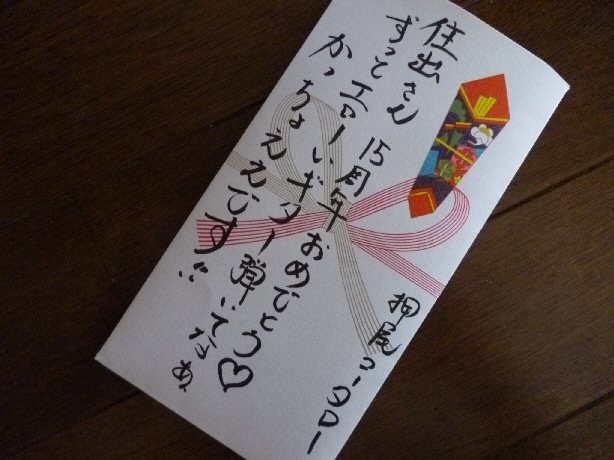 住出さん 15周年 おめでとう♡
ずっと エローいギター弾いてなぁ
かっちょええです!!
押尾コータロー